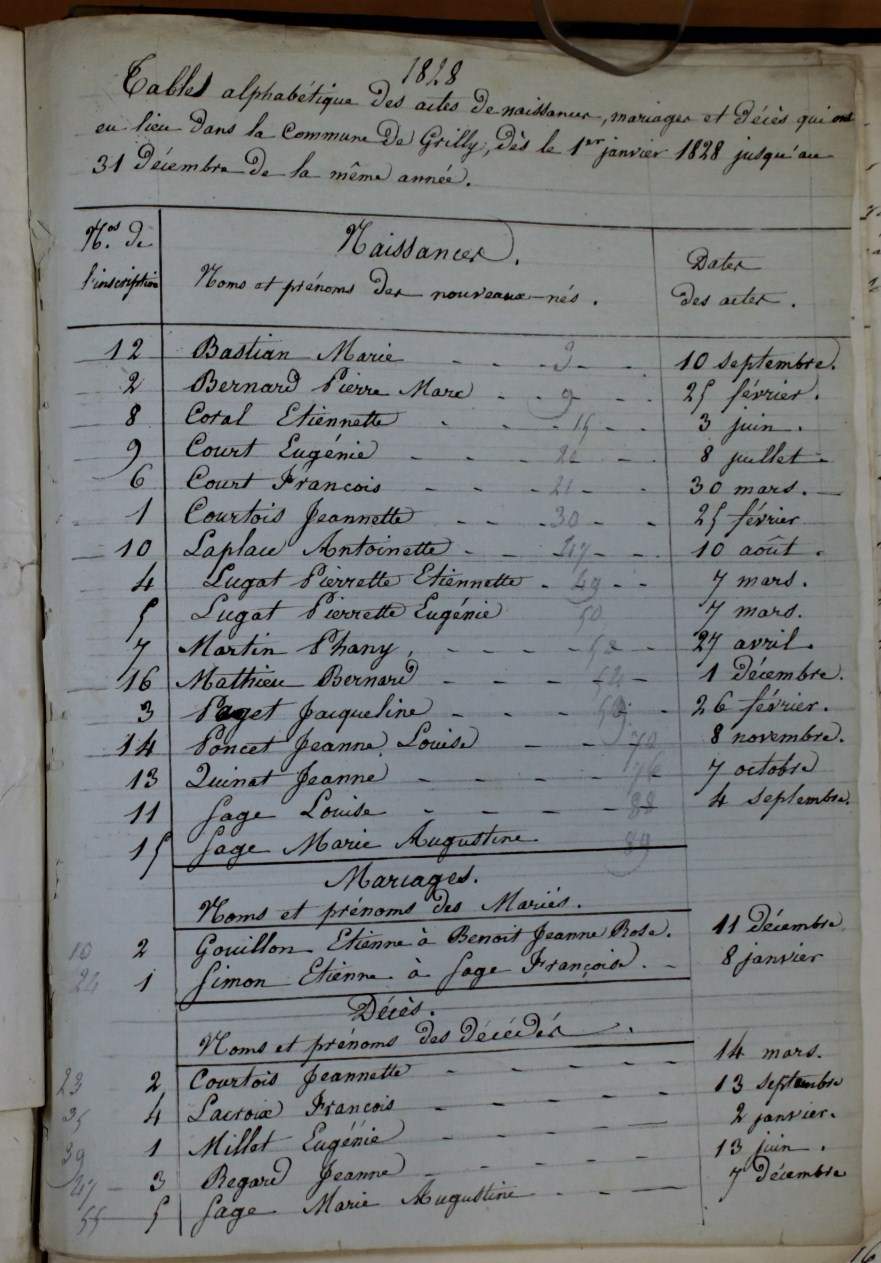 1828
Tables alphabétique des actes de naissances, mariages et décès qui ont
eu lieu dans la Commune de Grilly, dès le 1er janvier 1828 jusqu'au
31 Décembre de la même année.
Nos. de l'inscription
Naissances.
Noms et prénoms des nouveaux-nés.
Dates des actes.
12 Bastian Marie - - 3 - - 10 septembre.
2 Bernard Pierre Marc - - 9 - - 25 février.
8 Coral Etiennette - - 15 - - 3 juin.
9 Court Eugénie - - - - - 8 juillet -
6 Court François - - - 21 - - 30 mars. -
1 Courtois Jeannette - - 30 - - 25 février
10 Laplace Antoinette - - 47 - - 10 août.
4 Lugat Pierrette Etiennette - 49 - - 7 mars.
5 Lugat Pierrette Eugénie 50 7 mars.
7 Martin Phany, - - - - - 27 avril.
16 Mathieu Bernard - - - 54 - 1 décembre.
3 Paget Jacqueline - - - - - 26 février.
14 Poncet Jeanne Louise - - 70 8 novembre.
13 Quinat Jeanne - - - 76 7 octobre
11 Sage Louise - - - 88 4 septembre.
15 Sage Marie Augustine 89
Mariages.
Noms et prénoms des Mariés.
10 2 Gouillon Etienne à Benoit Jeanne Rose. 11 décembre
24 1 Simon Etienne à Sage Françoise. - 8 janvier
Décès.
Noms et prénoms des décédés.
23 2 Courtois Jeannette - - - - - 14 mars.
35 4 Lacroix François - - - - - 13 septembre
39 1 Millet Eugénie - - - - 2 janvier.
47 - 3 Regard Jeanne - - - - - 13 juin.
55 - 5 Sage Marie Augustine - - - 7 décembre
16